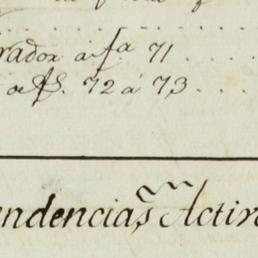 rador a fª 71
a fs. 72 a 73
endencias Activ